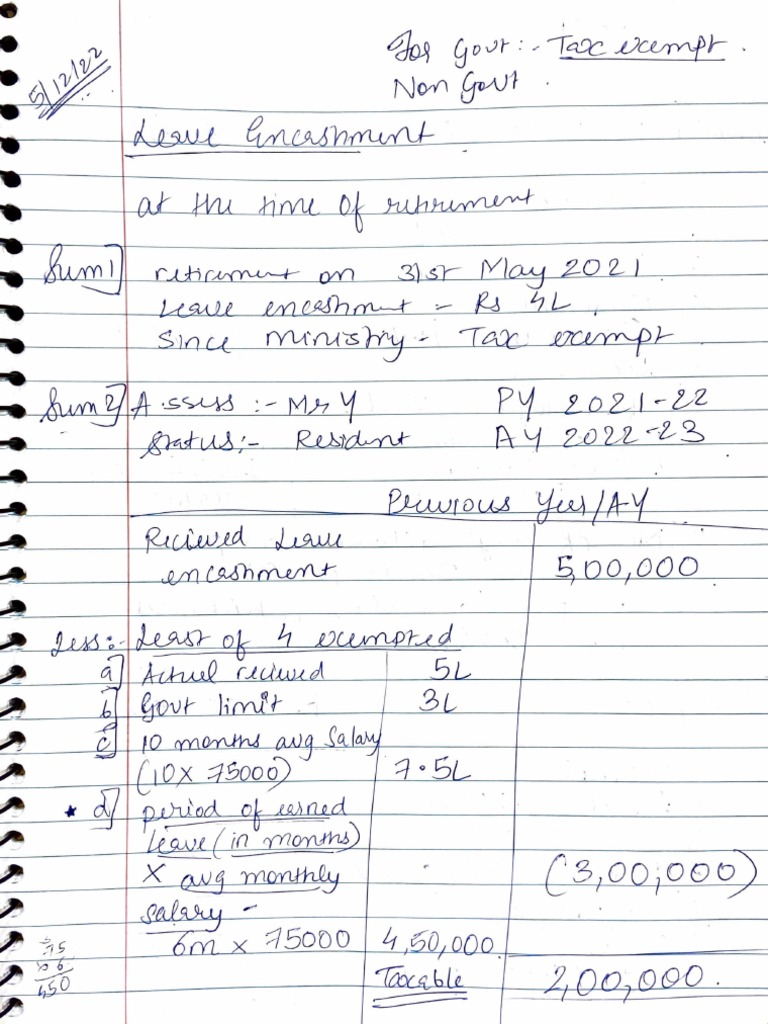 For Govt :- Tax exempt .
Non Govt .
5/12/22
Leave Encashment
at the time of retirement
Sum 1] retirement on 31st May 2021
Leave encashment - Rs 4L
Since ministry - Tax exempt
Sum 2] Assess :- Mr Y PY 2021-22
Status :- Resident AY 2022-23
Previous Year/AY
Recieved Leave
encashment 5,00,000
Less :- Least of 4 exempted
a] Actual recieved 5L
b] Govt limit - 3L
c] 10 months avg salary
(10 x 75000) 7.5L
* d] period of earned
leave (in months)
x avg monthly (3,00,000)
salary -
6m x 75000 4,50,000
Taxable 2,00,000.
75
x 6
450